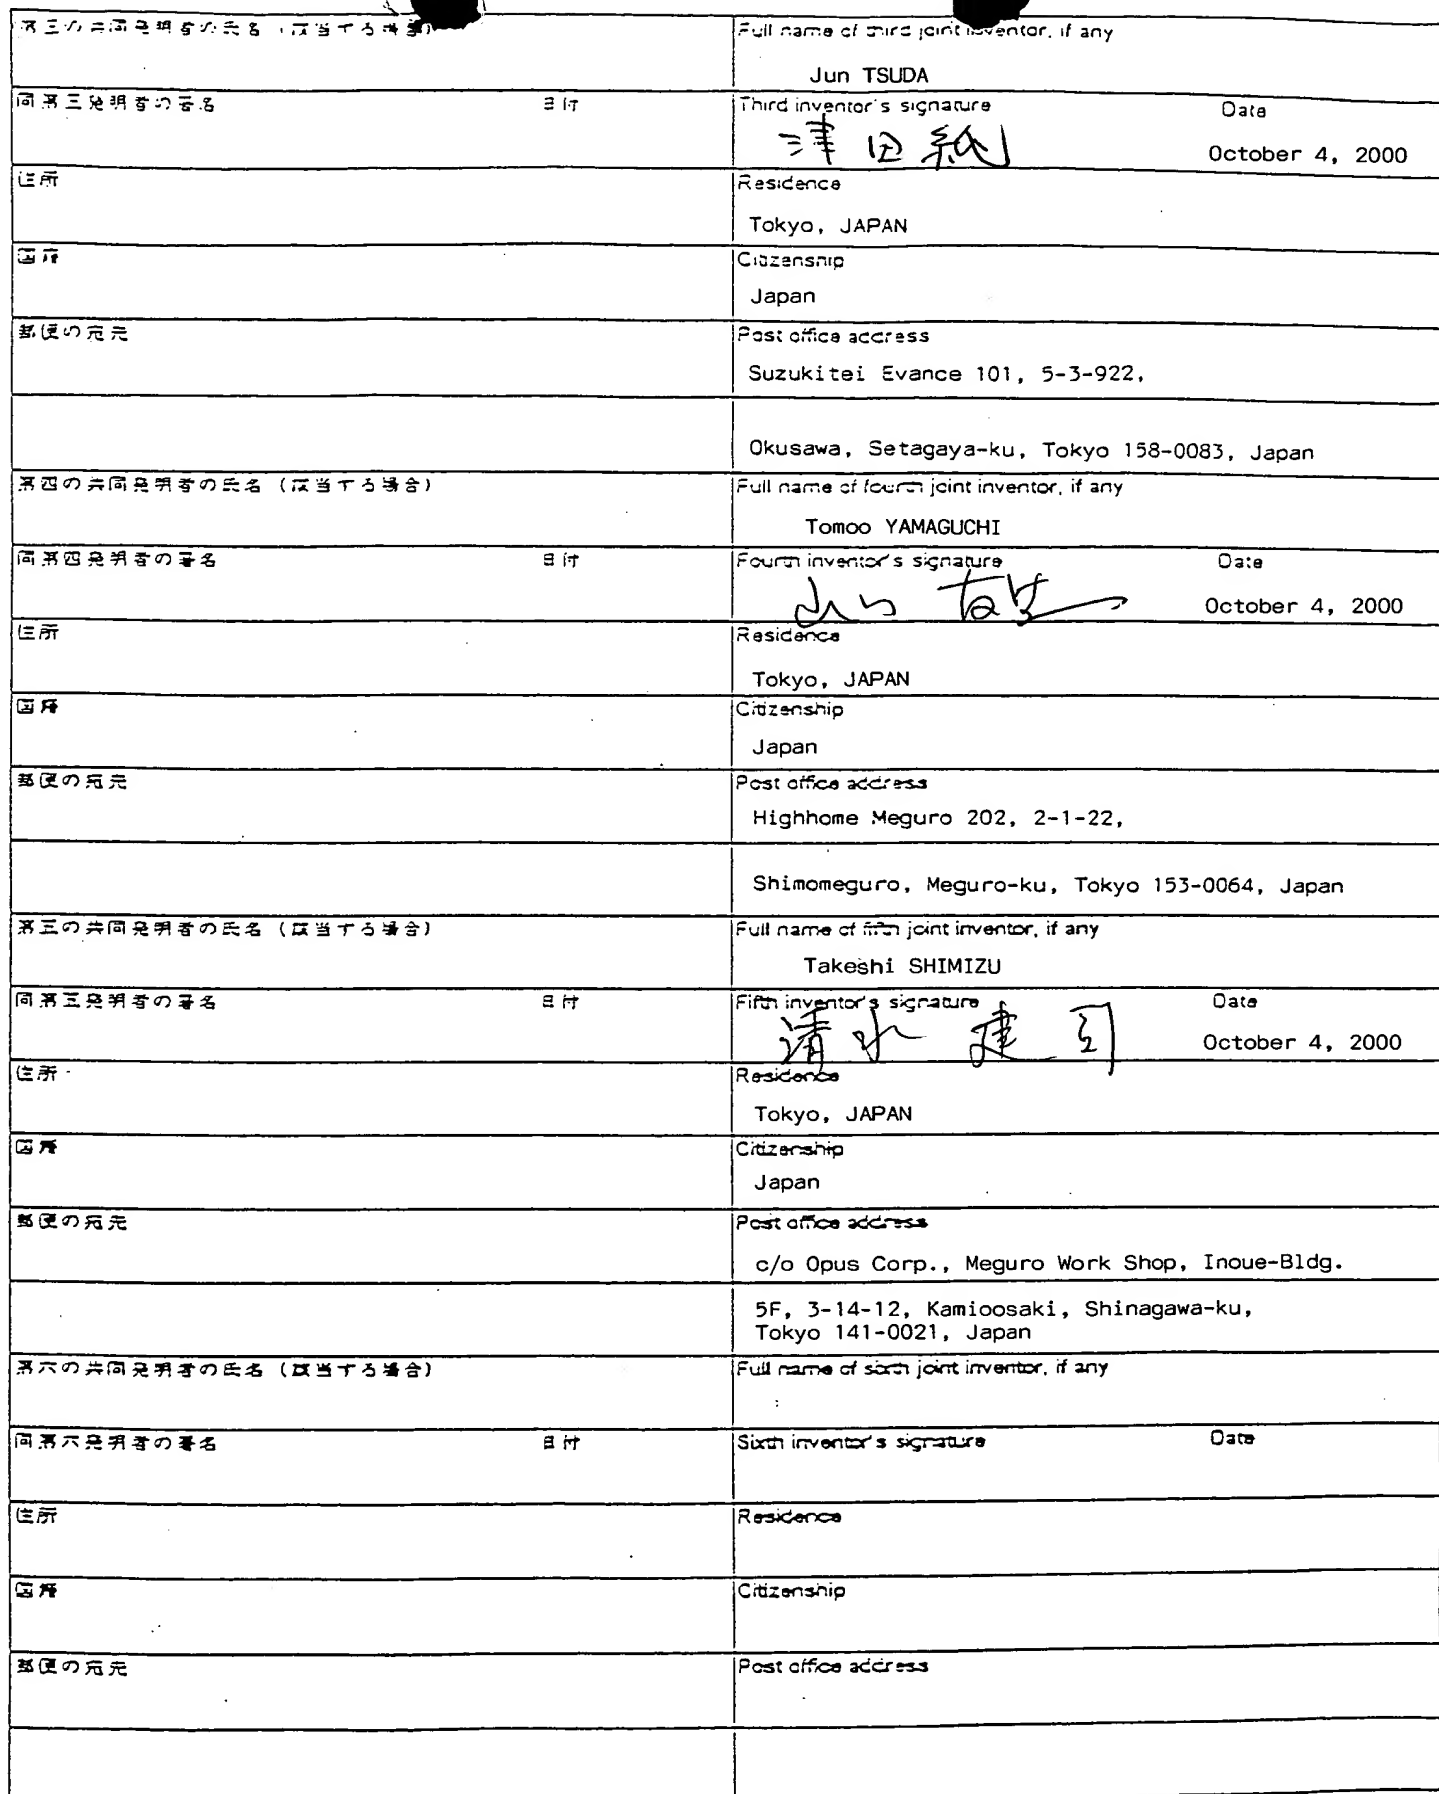 第三の共同発明者の氏名（該当する場合）
Full name of third joint inventor, if any
Jun TSUDA
同第三発明者の署名 日付
Third inventor's signature Date
津田
October 4, 2000
住所
Residence
Tokyo, JAPAN
国籍
Citizenship
Japan
郵便の宛先
Post office address
Suzukitei Evance 101, 5-3-922,
Okusawa, Setagaya-ku, Tokyo 158-0083, Japan
第四の共同発明者の氏名（該当する場合）
Full name of fourth joint inventor, if any
Tomoo YAMAGUCHI
同第四発明者の署名 日付
Fourth inventor's signature Date
山口
October 4, 2000
住所
Residence
Tokyo, JAPAN
国籍
Citizenship
Japan
郵便の宛先
Post office address
Highhome Meguro 202, 2-1-22,
Shimomeguro, Meguro-ku, Tokyo 153-0064, Japan
第五の共同発明者の氏名（該当する場合）
Full name of fifth joint inventor, if any
Takeshi SHIMIZU
同第五発明者の署名 日付
Fifth inventor's signature Date
清水 建司
October 4, 2000
住所
Residence
Tokyo, JAPAN
国籍
Citizenship
Japan
郵便の宛先
Post office address
c/o Opus Corp., Meguro Work Shop, Inoue-Bldg.
5F, 3-14-12, Kamioosaki, Shinagawa-ku,
Tokyo 141-0021, Japan
第六の共同発明者の氏名（該当する場合）
Full name of sixth joint inventor, if any
同第六発明者の署名 日付
Sixth inventor's signature Date
住所
Residence
国籍
Citizenship
郵便の宛先
Post office address